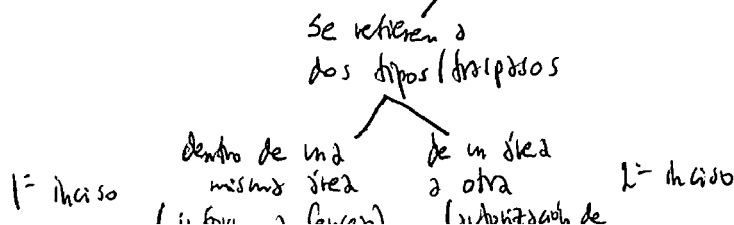 se refieren a
dos tipos / traspasos
dentro de una
misma área
de un área
a otra
1º inciso
2º inciso
(autorización de